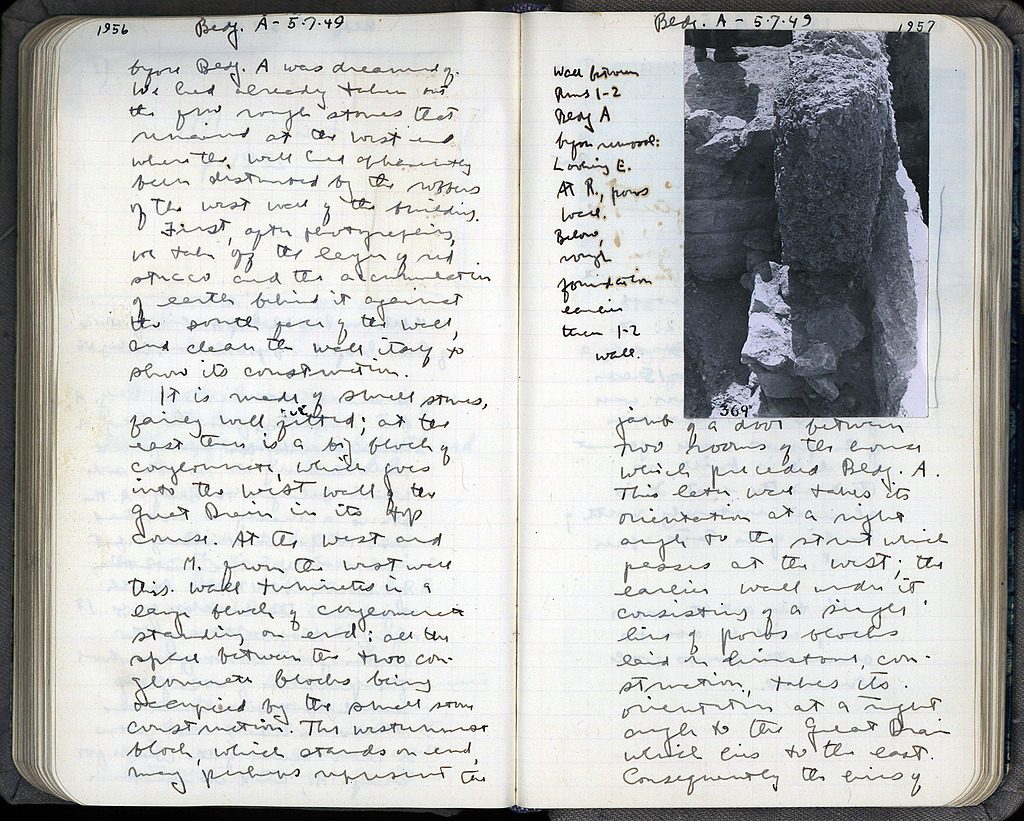 1956 Bldg. A - 5.7.49
before Bldg. A was dreamed of.
We had already taken out
the few rough stones that
remained at the west end
where the wall had apparently
been disturbed by the robbers
of the west wall of the building.
First, after photographing,
we take off the layer of red
stucco and the accumulation
of earth behind it against
the south face of the wall,
and clean the wall itself to
show its construction.
It is made of small stones,
fairly well jointed; at the
east there is a big block of
conglomerate which goes
into the west wall of the
Great Drain in its top
course. At the west end
M. from the west wall
this wall terminates in a
large block of conglomerate
standing on end; all the
space between the two con-
glomerate blocks being
occupied by the small stone
construction. The westernmost
block, which stands on end,
may perhaps represent the
Bldg. A - 5.7.49 1957
Wall between
Rms 1-2
Bldg A
before removal:
Looking E.
At R., poros
wall.
Below,
rough
foundation
earlier
than 1-2
wall.
369
jamb of a door between
two rooms of the house
which preceded Bldg. A.
This later wall takes its
orientation at a right
angle to the street which
passes at the west; the
earlier wall under it
consisting of a single
line of poros blocks
laid in limestone con-
struction, takes its
orientation at a right
angle to the Great Drain
which lies to the east.
Consequently the lines of